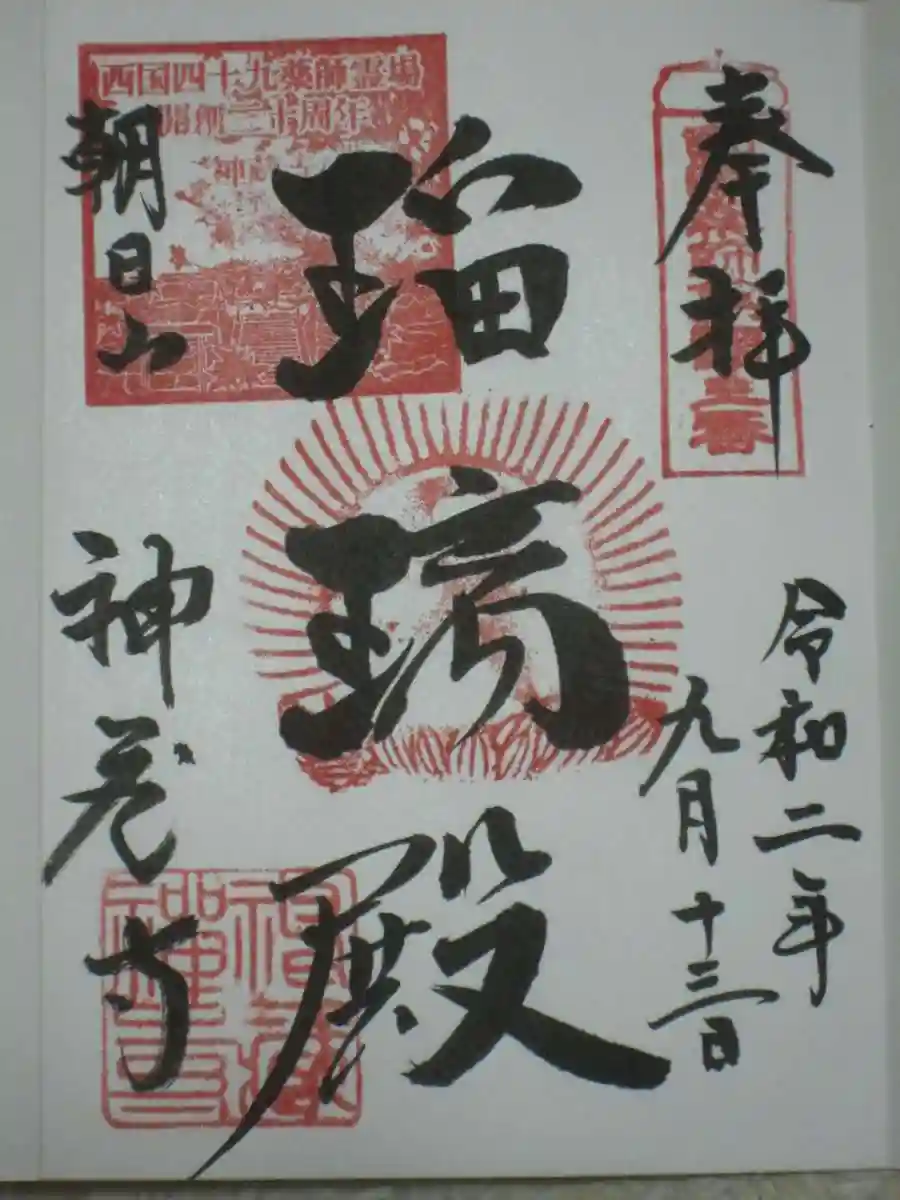 奉拝
令和二年
九月十三日
瑠璃殿
西国四十九薬師霊場
開創三十周年
朝日山
神蔵寺